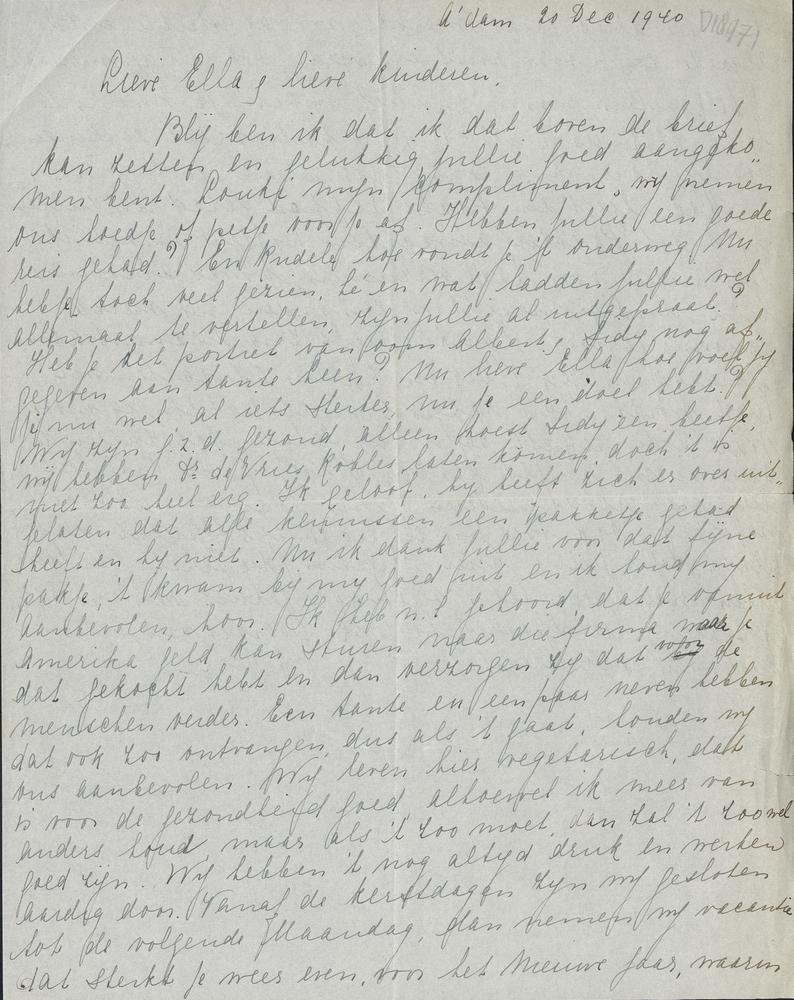 A'dam 20 Dec 1940 D18971
Lieve Ella & lieve kinderen,
Blij ben ik dat ik dat boven de brief
kan zetten en gelukkig jullie goed aangeko„
men bent. Louki mijn compliment, wij nemen
ons hoedje of petje voor je af. Hebben jullie een goede
reis gehad? En Rudele hoe vondt je 't onderweg. Nu
hebt toch veel gezien, hé en wat hadden jullie wel
allemaal te vertellen, zijn jullie al uitgepraat?
Heb je het portret van oom Albert & Sidy nog af„
gegeven aan tante Leen? Nu lieve Ella hoe voel jij
je nu wel, al iets sterker, nu je een doel hebt?
Wij zijn g.z.d. gezond, alleen hoest Sidy een beetje,
wij hebben Dr. de Vries Robles laten komen doch 't is
niet zoo heel erg. Ik geloof, hy heeft zich er over uit„
gelaten dat alle kennissen een pakketje gehad
heeft en hy niet. Nu ik dank jullie voor dat fijne
pakje, 't kwam bij my goed uit en ik houd my
aanbevolen, hoor. Ik heb n.l. gehoord, dat je vanuit
Amerika geld kan sturen naar die firma waar je
dat gekocht hebt en dan verzorgen zy dat voor de
menschen verder. Een tante en een paar neven hebben
dat ook zoo ontvangen, dus als 't gaat, houden wy
ons aanbevolen. Wij leven hier vegetarisch, dat
is voor de gezondheid goed, alhoewel ik meer van
anders houd, maar als 't zoo moet, dan zal 't zoo wel
goed zijn. Wij hebben 't nog altyd druk en werken
aardig door. Vanaf de kerstdagen zyn wy gesloten
tot de volgende Maandag, dan nemen wy vacantie
dat sterkt je weer even, voor het Nieuwe Jaar, waarin